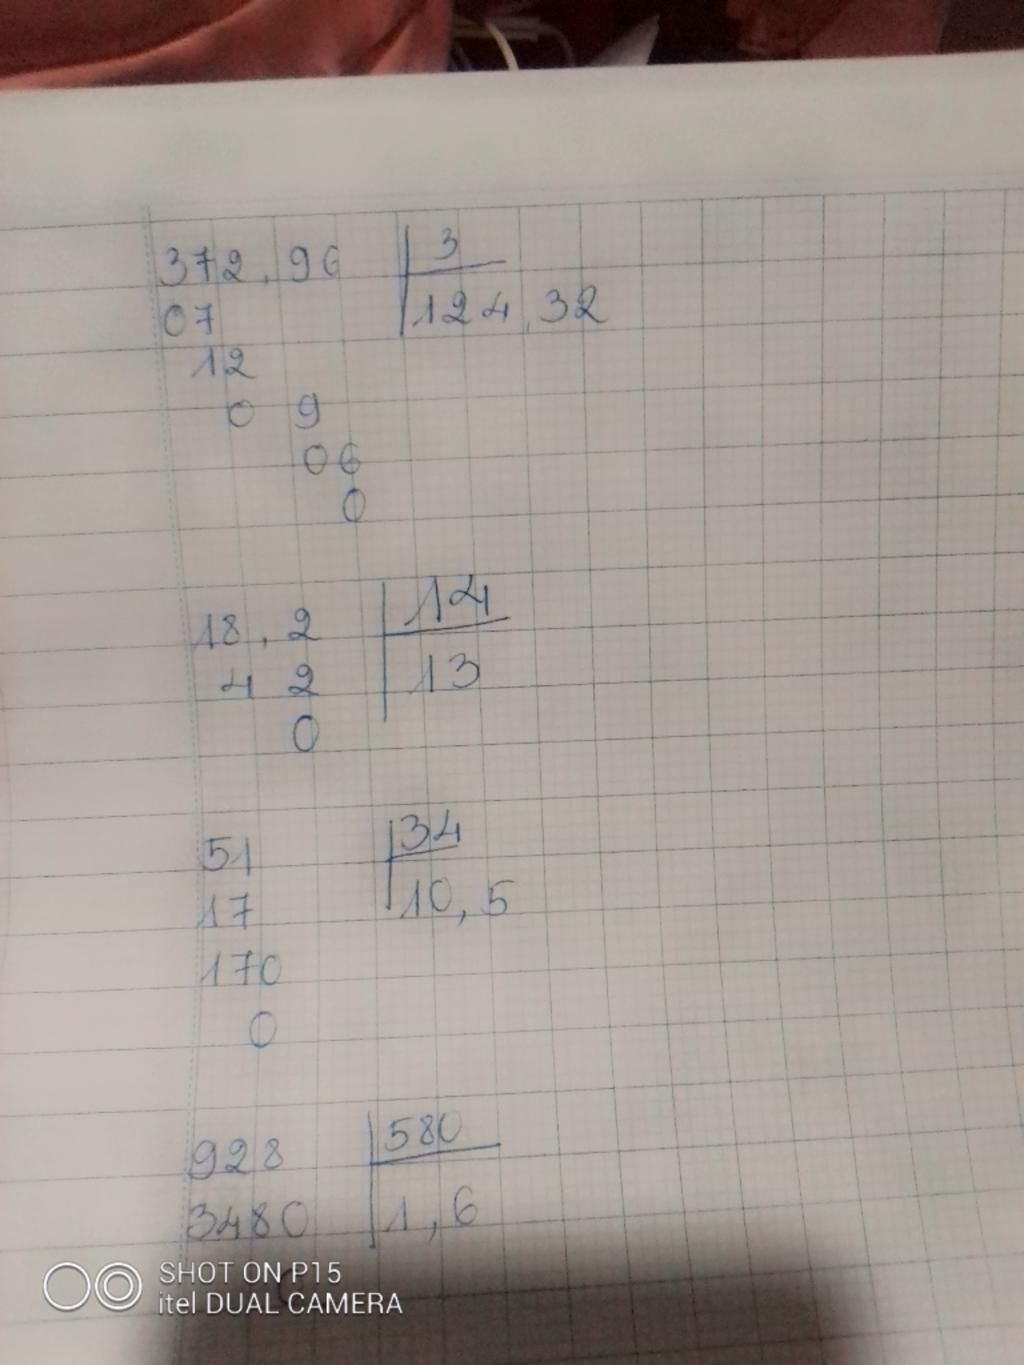 372,96 3
07 124,32
12
0 9
06
0
18,2 14
4 2 13
0
51 34
17 10,5
170
0
928 580
3480 1,6
SHOT ON P15
itel DUAL CAMERA